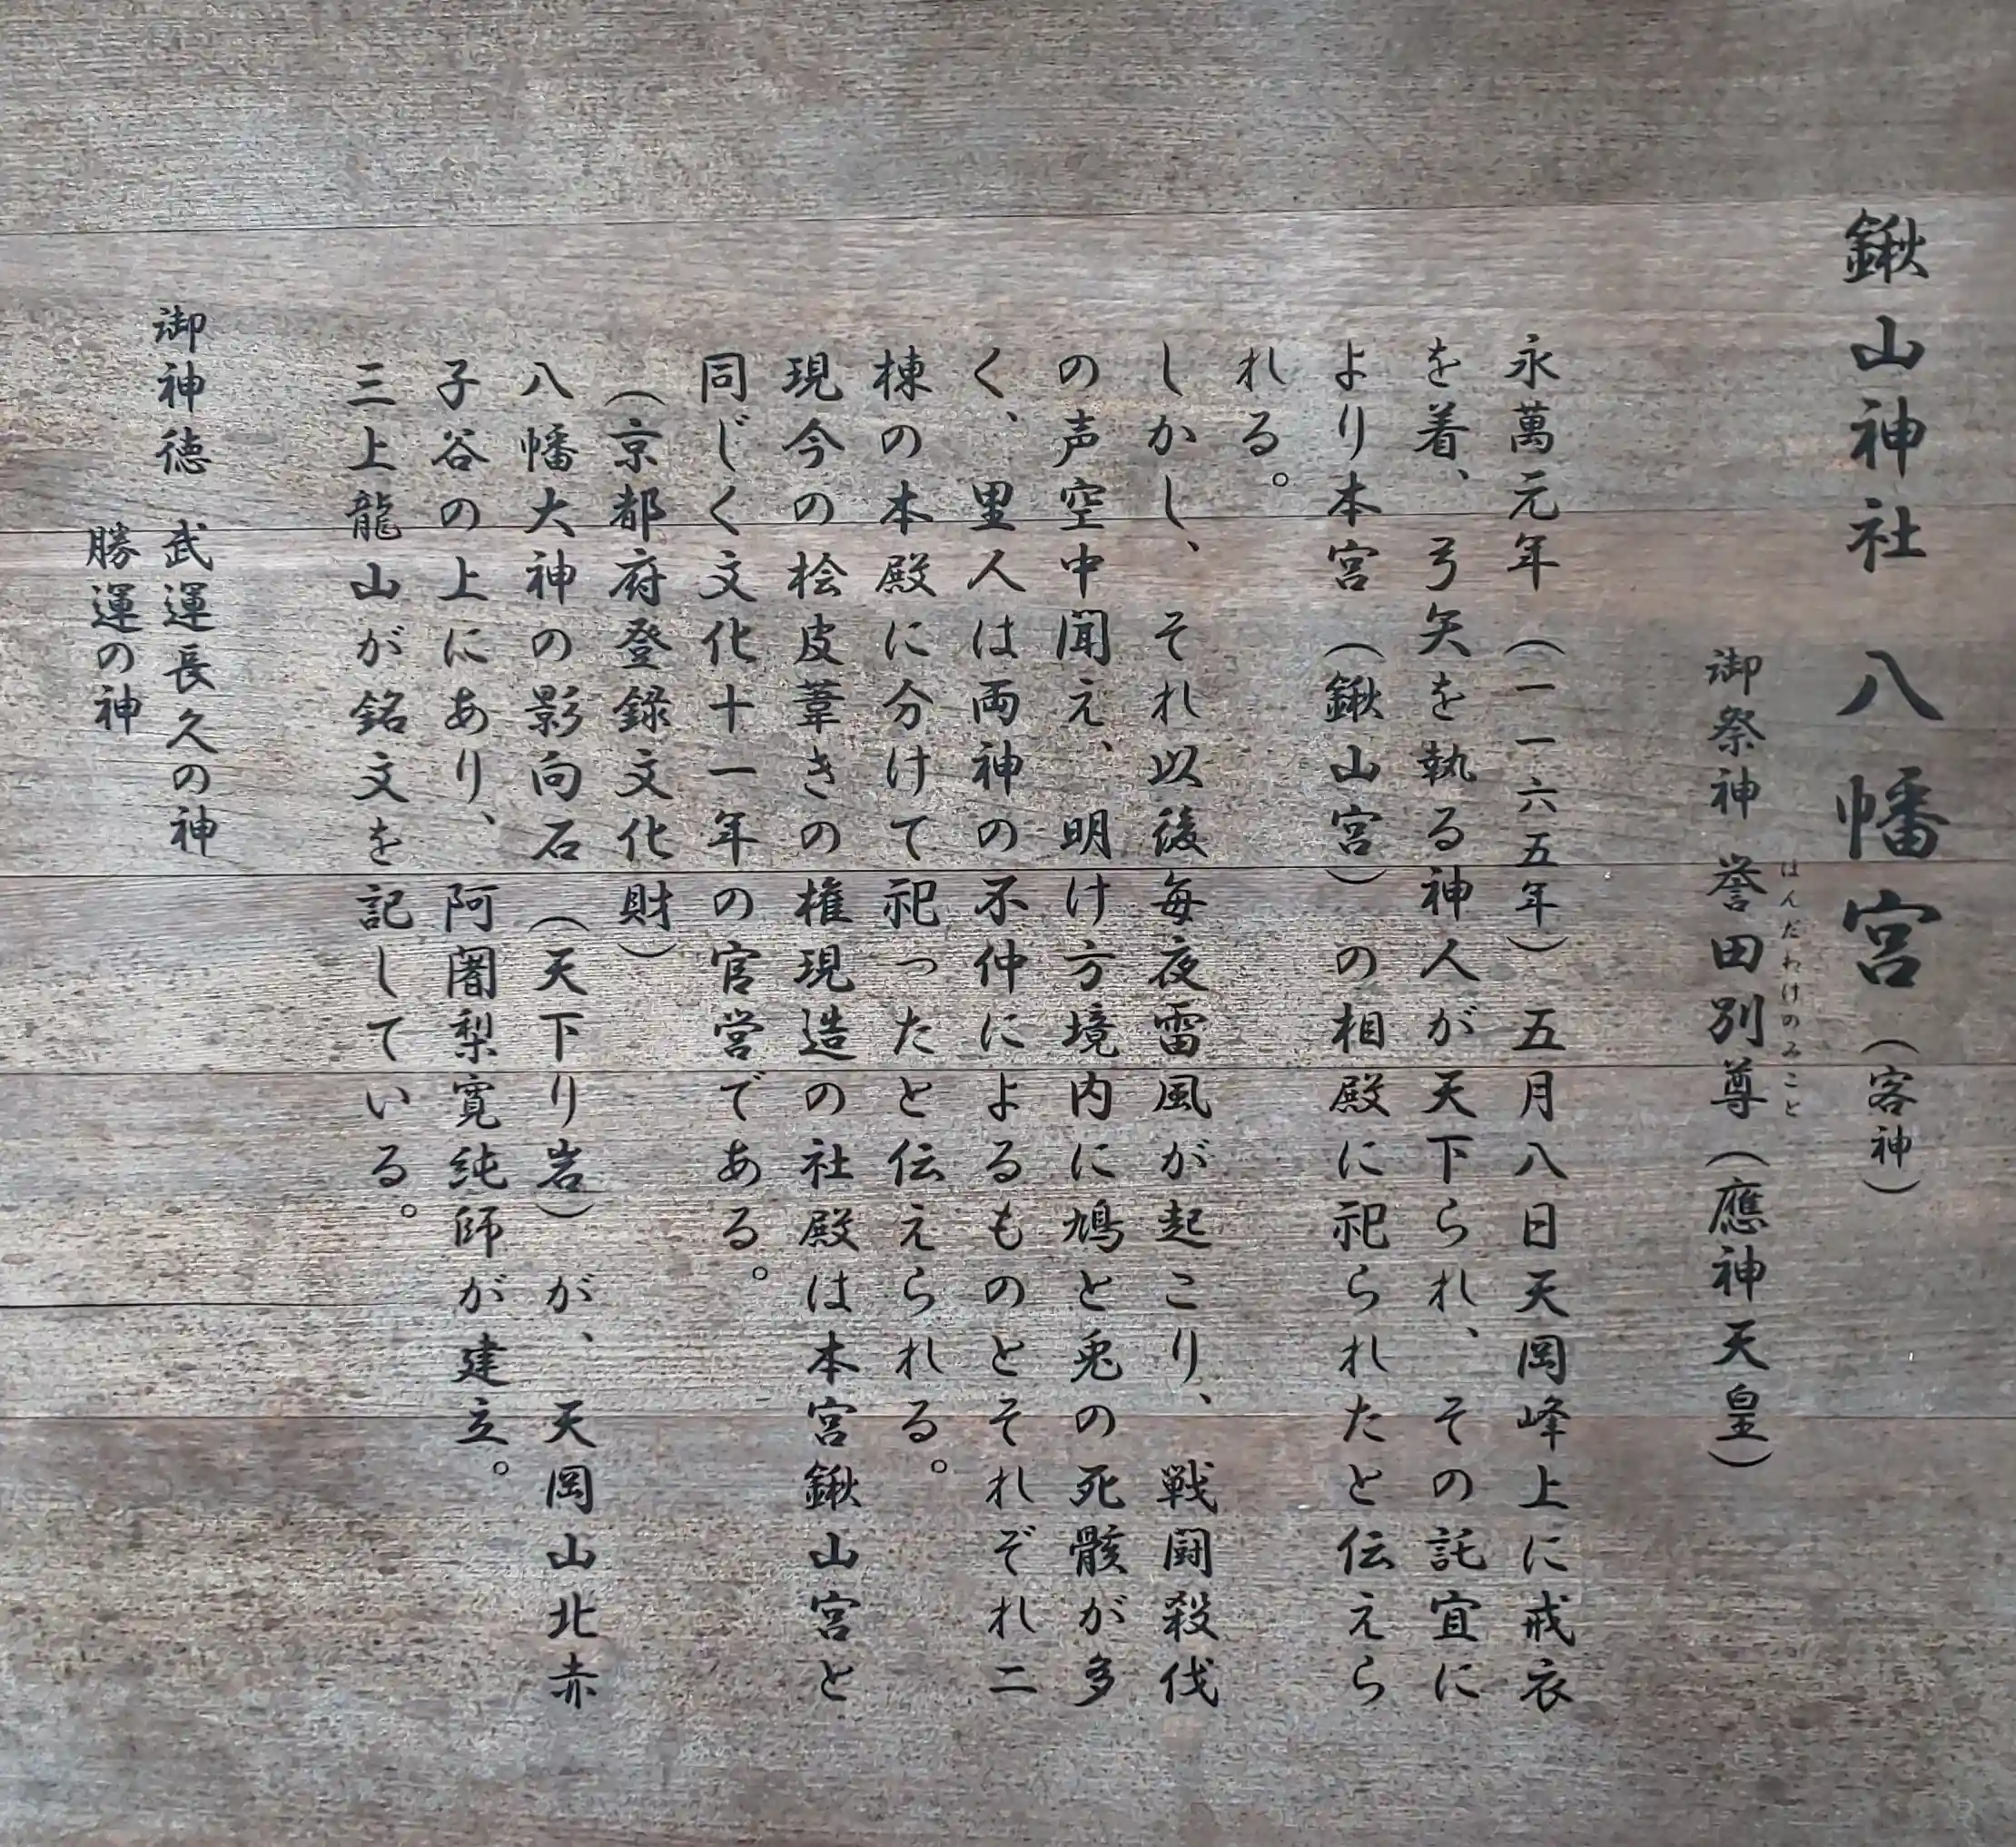 鍬山神社 八幡宮（客神）
御祭神 誉田別尊（應神天皇）
はんだわけのみこと
永萬元年（一一六五年）五月八日天岡峰上に戒衣
を着、弓矢を執る神人が天下られ、その託宜に
より本宮（鍬山宮）の相殿に祀られたと伝えら
れる。
しかし、それ以後毎夜雷風が起こり、戦闘殺伐
の声空中聞え、明け方境内に鳩と兎の死骸が多
く、里人は両神の不仲によるものとそれぞれ二
棟の本殿に分けて祀ったと伝えられる。
現今の桧皮葺きの権現造の社殿は本宮鍬山宮と
同じく文化十一年の官営である。
（京都府登録文化財）
八幡大神の影向石（天下り岩）が、天岡山北赤
子谷の上にあり、阿闍梨寛純師が建立。
三上龍山が銘文を記している。
御神徳 武運長久の神
勝運の神